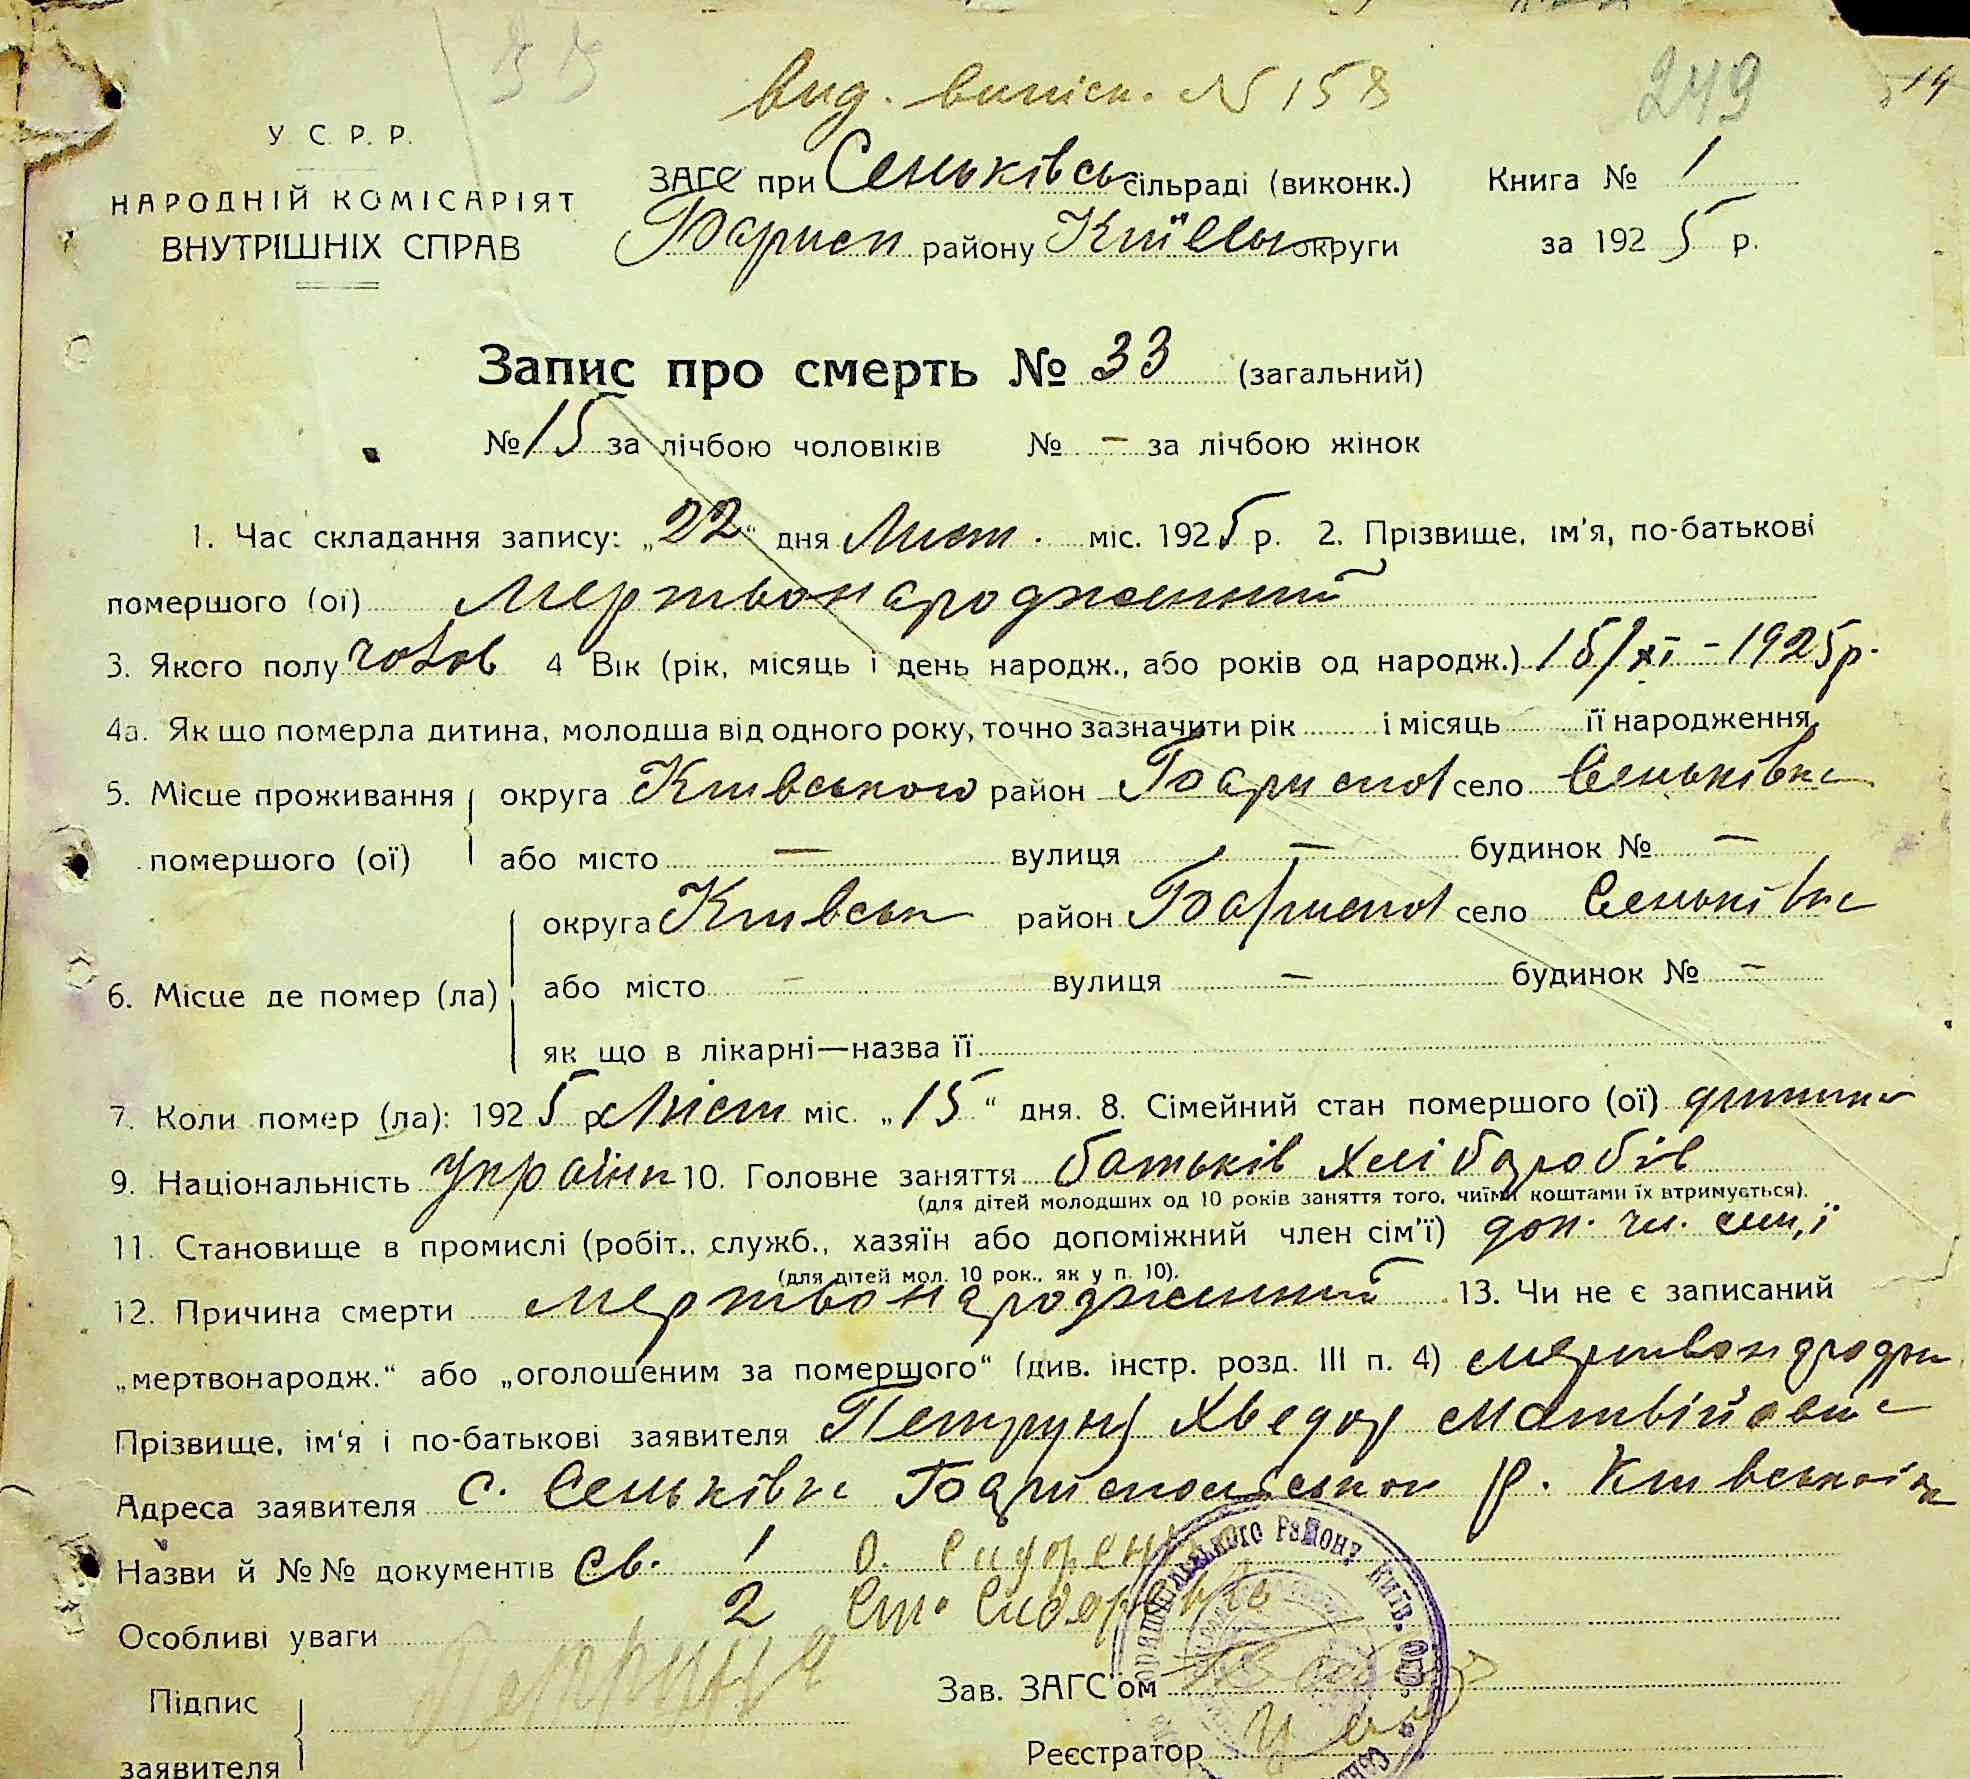 вид. виписк. № 158
249
14
У С. Р. Р.
НАРОДНІЙ КОМІСАРІЯТ
ВНУТРІШНІХ СПРАВ
ЗАГС при Сеньківсь сільраді (виконк.) Книга № 1
Барисп району Київськ округи за 1925 р.
Запис про смерть № 33 (загальний)
№ 15 за лічбою чоловіків № – за лічбою жінок
1. Час складання запису: „22“ дня Лист. міс. 1925 р. 2. Прізвище, ім'я, по-батькові
помершого (ої) мертвонарожденний
3. Якого полу чолов 4 Вік (рік, місяць і день народж., або років од народж.) 15/XI – 1925 р.
4а. Як що померла дитина, молодша від одного року, точно зазначити рік і місяць її народження
5. Місце проживання округа Київського район Бариспол село Сеньківка
помершого (ої) або місто – вулиця – будинок № –
округа Київськ район Бариспол село Сеньківка
6. Місце де помер (ла) або місто – вулиця – будинок № –
як що в лікарні—назва її
7. Коли помер (ла): 1925 р. Лист міс. „15“ дня. 8. Сімейний стан помершого (ої) дитина
9. Національність україн 10. Головне заняття батьків хліборобів
(для дітей молодших од 10 років заняття того, чиїми коштами їх втримується).
11. Становище в промислі (робіт., служб., хазяїн або допоміжний член сім'ї) доп. чл. сим'ї
(для дітей мол. 10 рок., як у п. 10).
12. Причина смерти мертвонарожденний 13. Чи не є записаний
„мертвонародж.“ або „оголошеним за померщого“ (див. інстр. розд. III п. 4)
Прізвище, ім'я і по-батькові заявителя Петруня Хведор Матвійович
Адреса заявителя с. Сеньківка Бариспольського р. Київської
Назви й №№ документів св. 1 О. Сидоренко
2 Ст. Сидоренко
Особливі уваги
Підпис Петруня
заявителя
Зав. ЗАГС'ом
Реєстратор
району Київ. Окр.